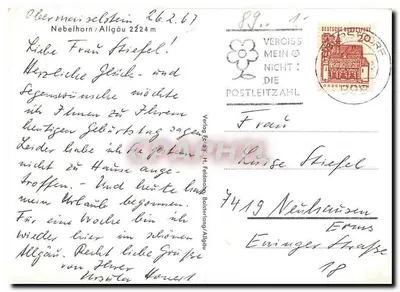 Obermaiselstein 26.2.67
Nebelhorn/Allgäu 2224 m
Liebe Frau Striefel!
Herzliche Glück- und
Segenswünsche möchte
ich Ihnen zu Ihrem
heutigen Geburtstag sagen.
Leider habe ich Sie gestern
nicht zu Hause ange-
troffen. - Und heute hat
mein Urlaub begonnen.
Für eine Woche bin ich
wieder hier im schönen
Allgäu. Recht liebe Grüße
von Ihrer
Ursula
89.-
VERGISS
MEIN
NICHT:
DIE
POSTLEITZAHL
DEUTSCHE BUNDESPOST
20
Frau
Luise Striefel
7419 Neuhausen
Erms
Eninger Straße
18